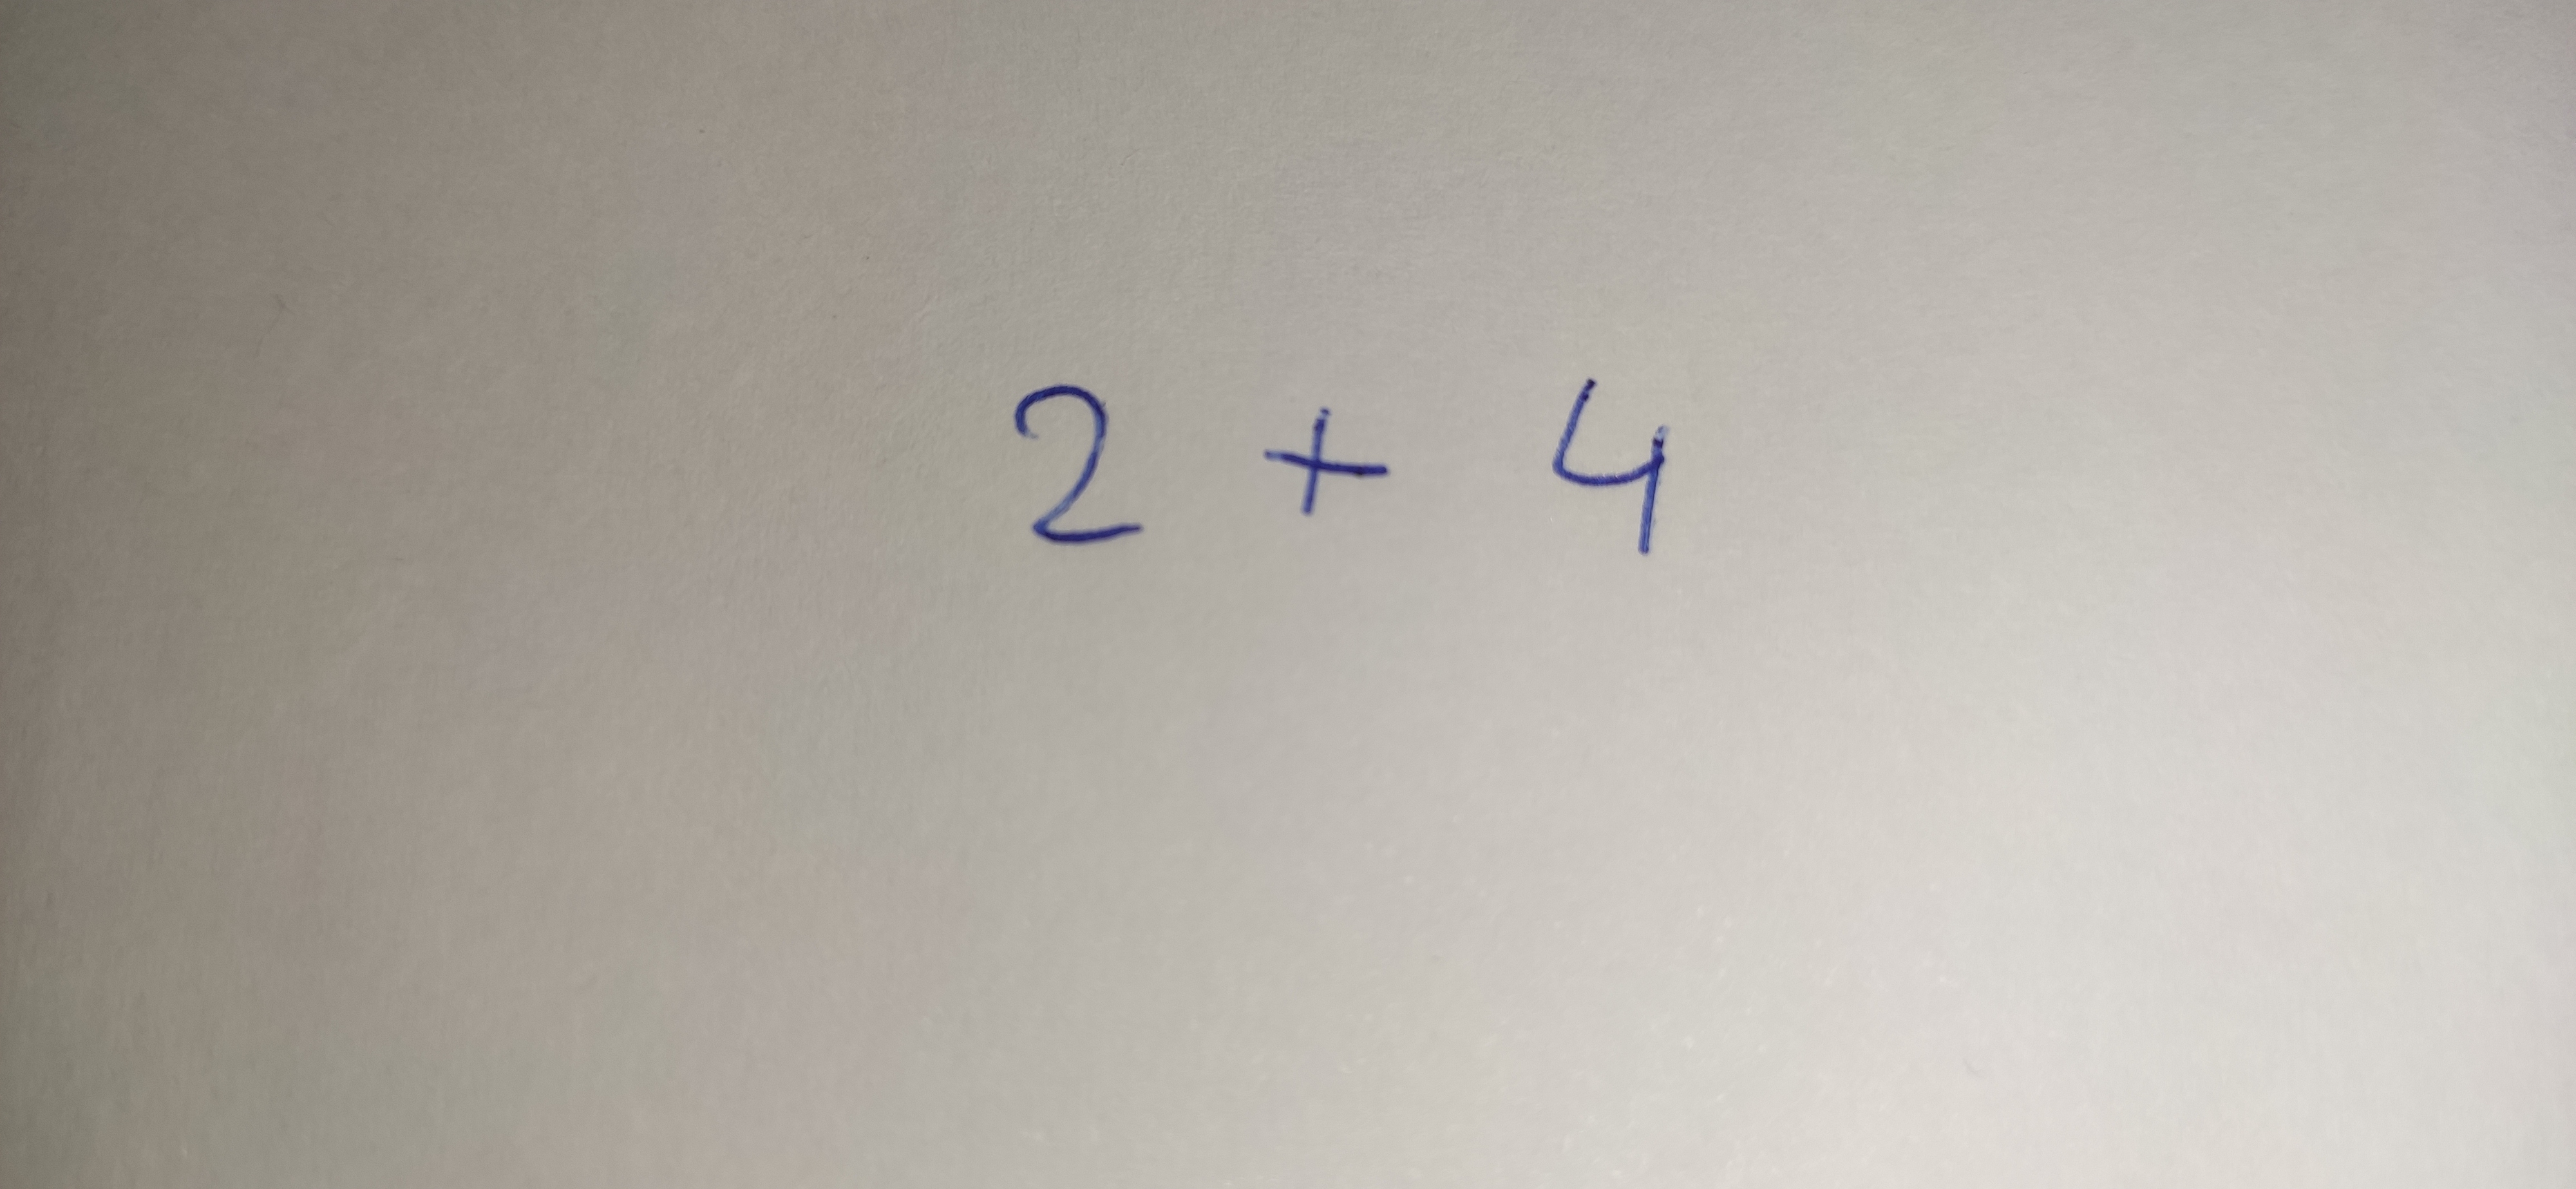 2 + 4